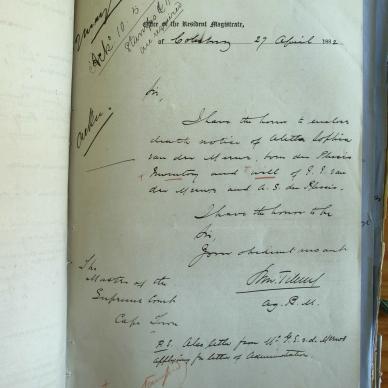 Office of the Resident Magistrate,
of Colesberg 27 April 1882
"Ack" 10.5
Stamps
are required
Sir,
I have the honor to enclose
death notice of Aletta Sophia
van der Merwe, born du Plessis
Inventory and will of
der Merwe and A. S. du Plessis.
I have the honor to be
Sir,
Your obedient servant
Actg. R. M.
The
Master of the
Supreme Court
Cape Town
P.S. Also letter from Mr v. d. Merwe
applying for letter of Administration.